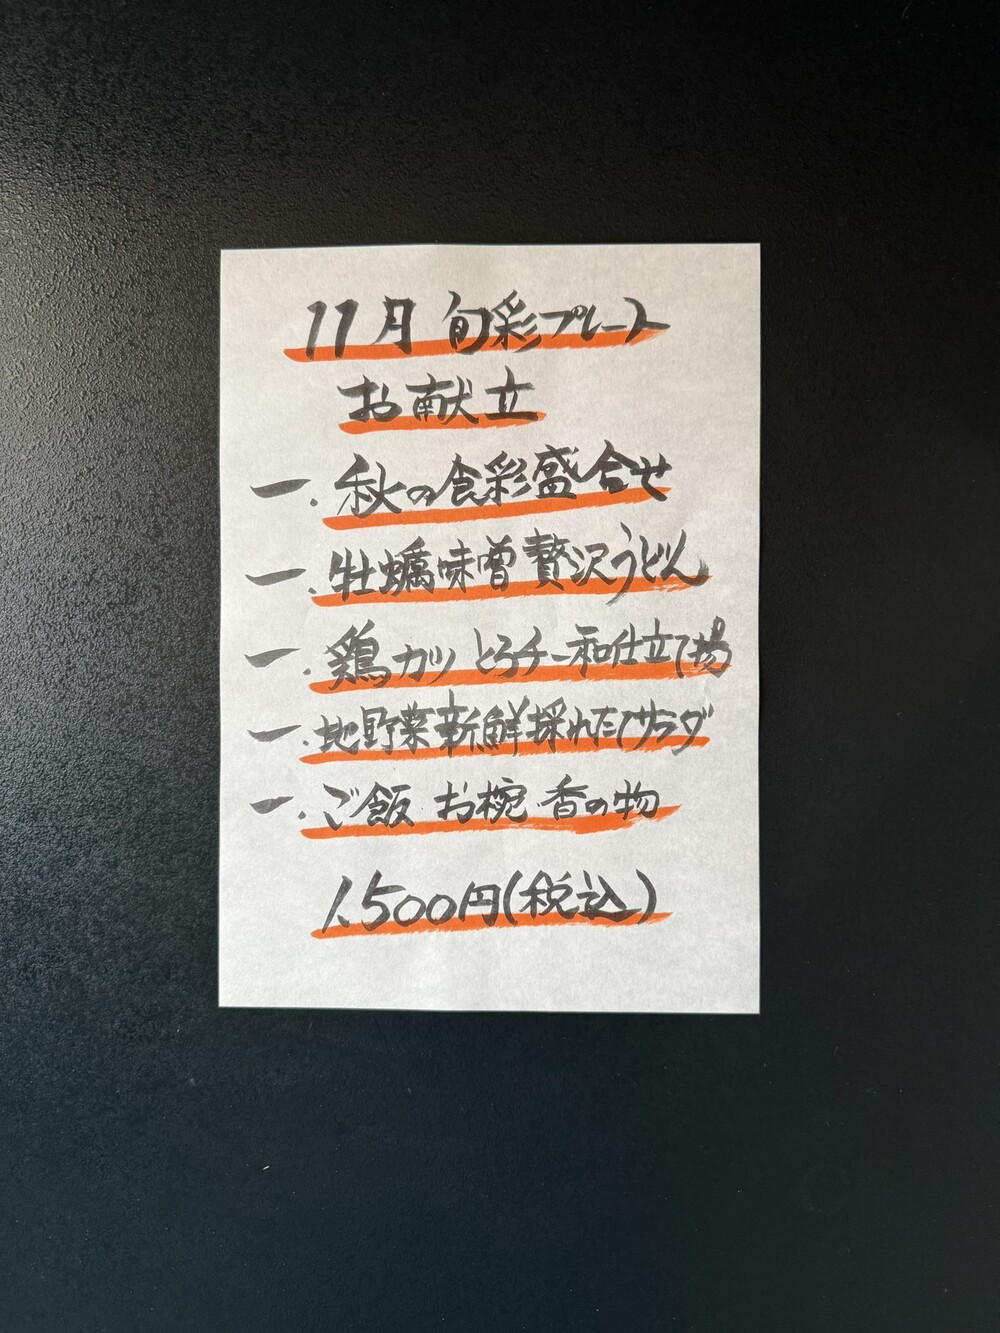 11月 旬彩プレート
お献立
一. 秋の食彩盛合せ
一. 牡蠣味噌贅沢うどん
一. 鶏カツ とろチー和仕立て揚
一. 地野菜新鮮採れたてサラダ
一. ご飯 お椀 香の物
1,500円(税込)